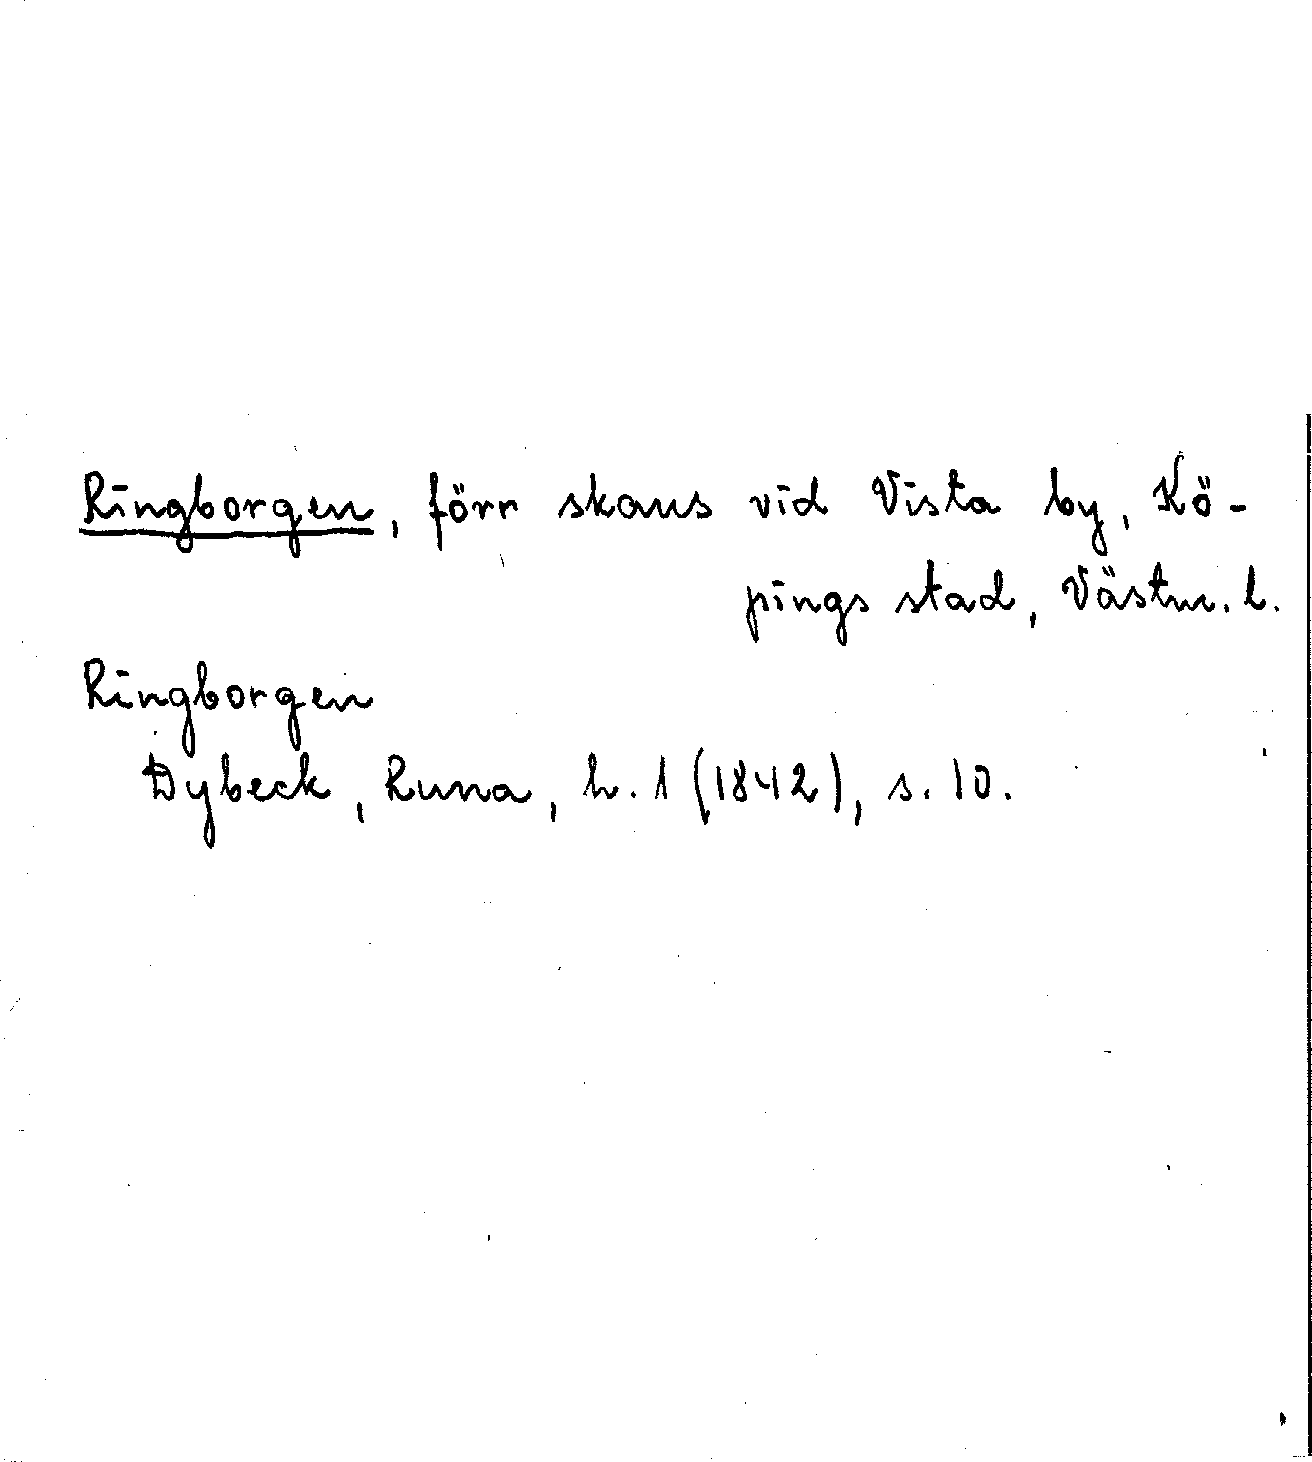 Ringborgen, förr skans vid Vista by, Kö-
pings stad, Västm. l.
Ringborgen
Dybeck, Runa, h. 1 (1842), s. 10.